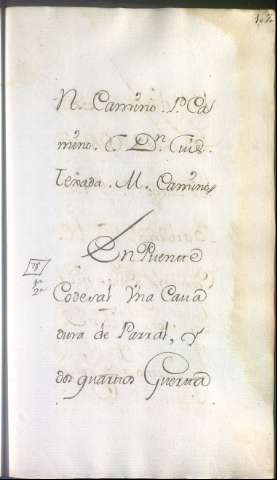 N. Camino. P. Ca
mino. C. Dn. Luis.
Texada. M. Camino
En Puente
Codesal Vna Cava
dura de Parral, y
dos quartos Guerra